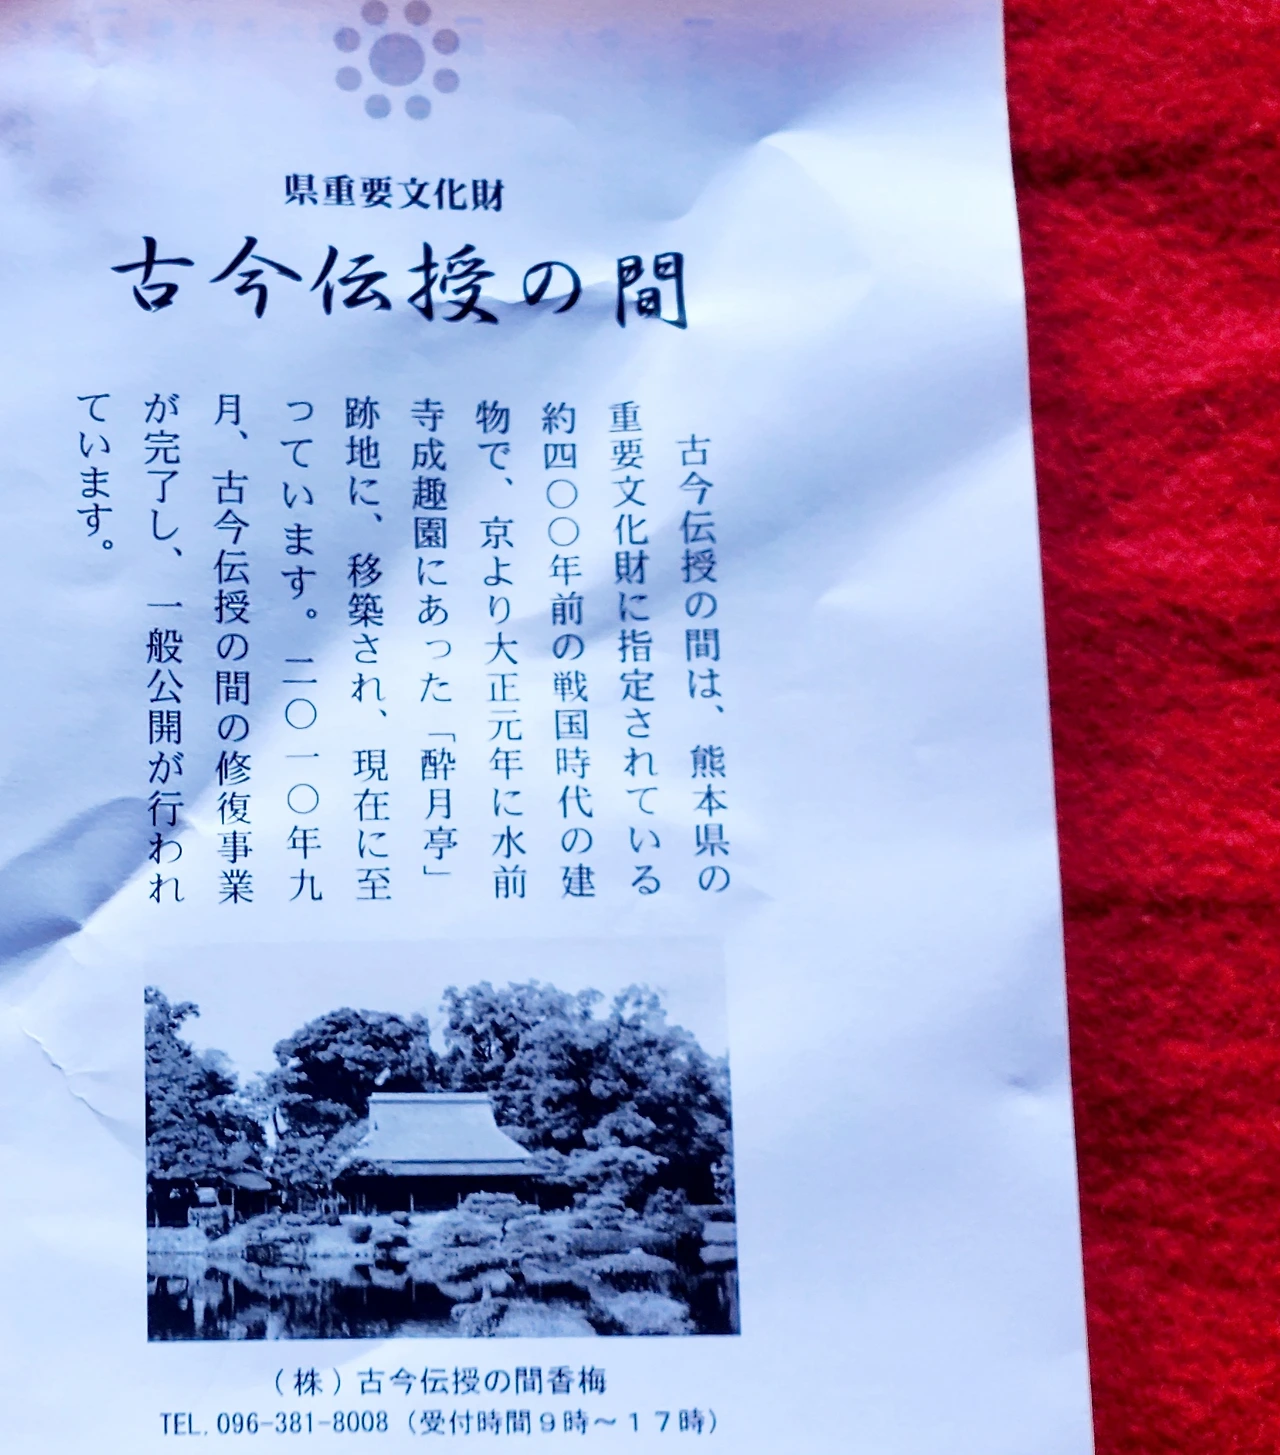 県重要文化財
古今伝授の間
古今伝授の間は、熊本県の
重要文化財に指定されている
約四〇〇年前の戦国時代の建
物で、京より大正元年に水前
寺成趣園にあった「酔月亭」
跡地に、移築され、現在に至
っています。二〇一〇年九
月、古今伝授の間の修復事業
が完了し、一般公開が行われ
ています。
（株）古今伝授の間香梅
TEL. 096-381-8008（受付時間９時～１７時）